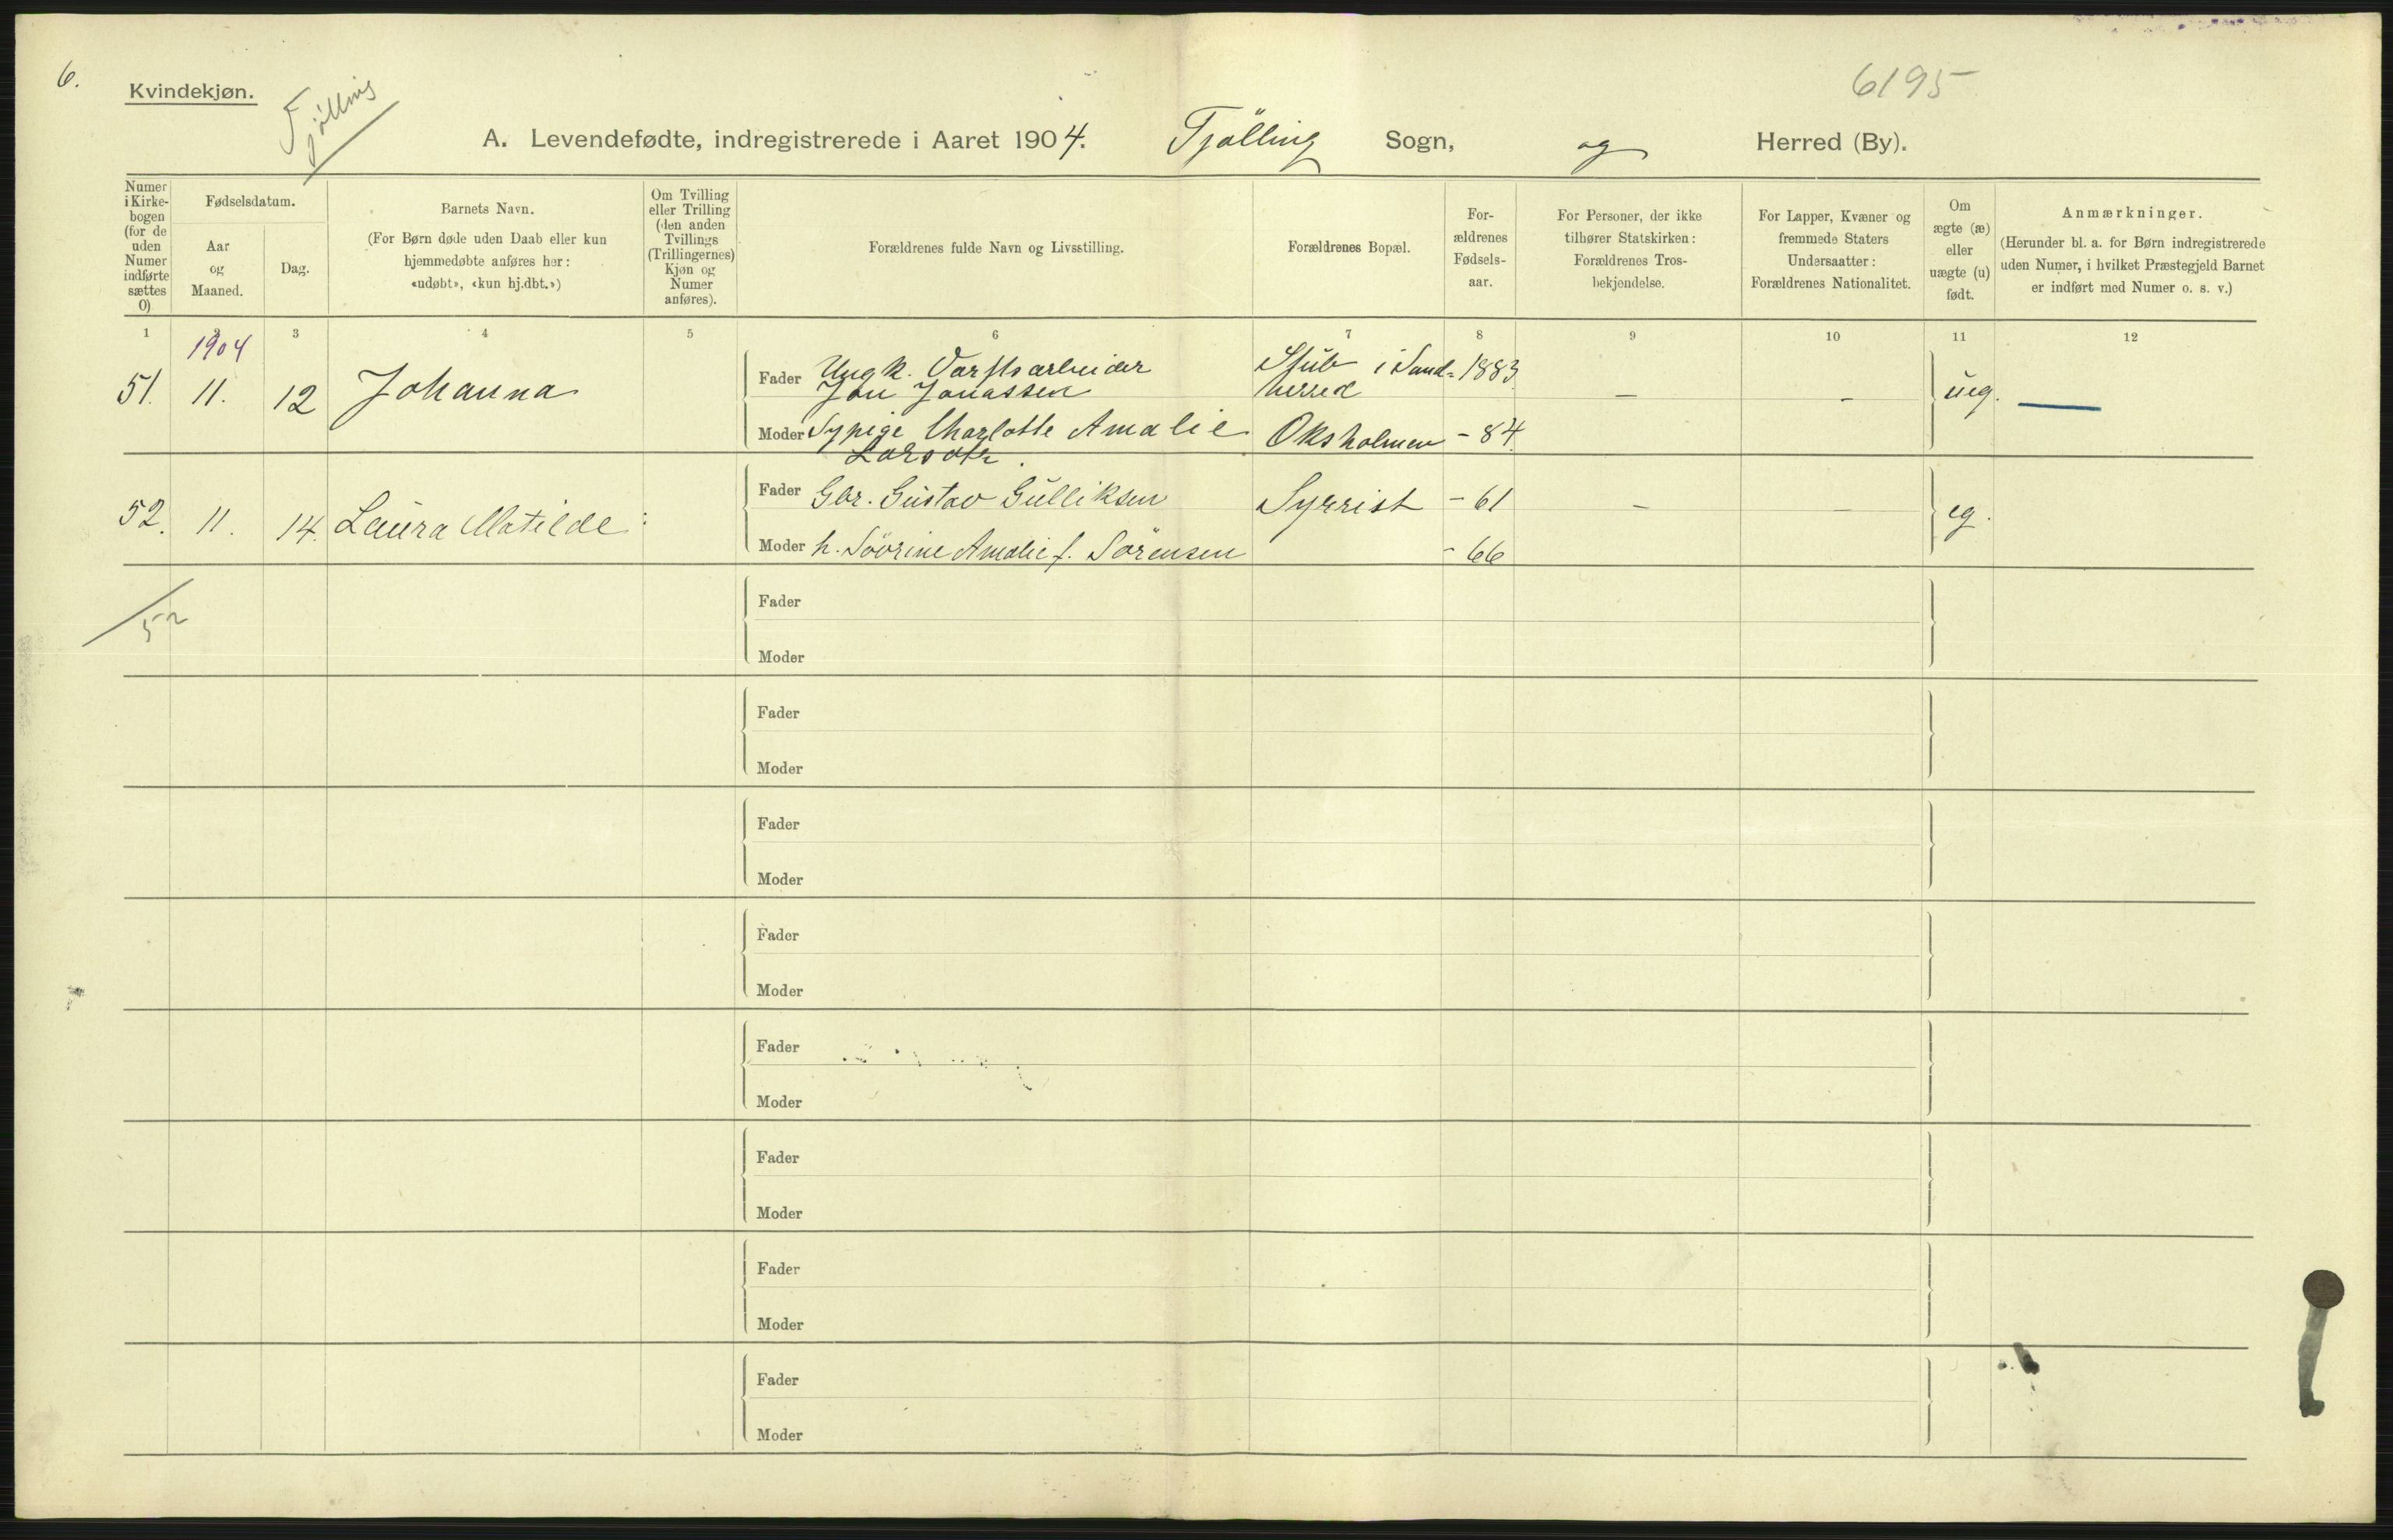 6.
Kvindekjøn.
Tjølling
6195
A. Levendefødte, indregistrerede i Aaret 1904. Tjölling Sogn, og Herred (By).
Numer i Kirkebogen (for de uden Numer indførte sættes 0)
Fødselsdatum.
Aar og Maaned.
Dag.
Barnets Navn.
(For Børn døde uden Daab eller kun hjemmedøbte anføres her: «udøbt», «kun hj.dbt.»)
Om Tvilling eller Trilling (den anden Tvillings (Trillingernes) Kjøn og Numer anføres).
Forældrenes fulde Navn og Livsstilling.
Forældrenes Bopæl.
Forældrenes Fødselsaar.
For Personer, der ikke tilhører Statskirken: Forældrenes Trosbekjendelse.
For Lapper, Kvæner og fremmede Staters Undersaatter: Forældrenes Nationalitet.
Om ægte (æ) eller uægte (u) født.
Anmærkninger.
(Herunder bl. a. for Børn indregistrerede uden Numer, i hvilket Præstegjeld Barnet er indført med Numer o. s. v.)
1 2 3 4 5 6 7 8 9 10 11 12
1904
51. 11. 12 Johanna
Fader Ungk. Varftsarbeider Jon Jonassen Stub i Sand= herred 1883 — - ueg. —
Moder Sypige Charlotte Amalie Larsdtr. Oksholmen - 84.
52. 11. 14. Laura Matilde
Fader Gbr. Gustav Gulliksen Syrrist - 61 — — eg.
Moder h. Sövrine Amalie f. Sörensen - 66
52
Fader
Moder
Fader
Moder
Fader
Moder
Fader
Moder
Fader
Moder
Fader
Moder
Fader
Moder
Fader
Moder